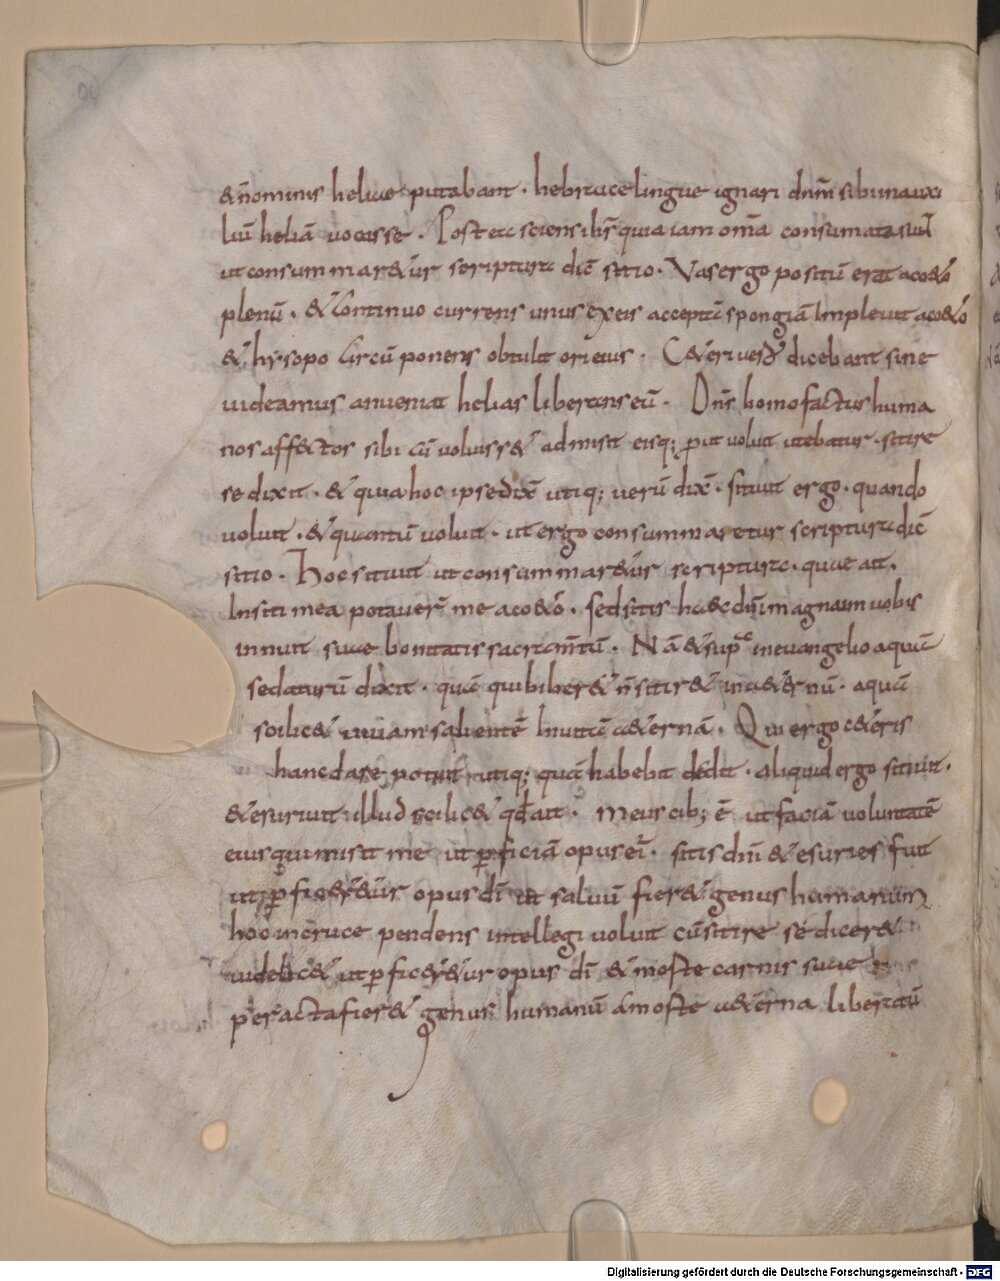 &ñominis heliae putabant · hebraice linguae ignari dnm̄ sibi in auxi
liū heliā vocasse . Postea sciens ihs̄ quia iam omīa consumata sunt
ut consummar&ur scriptura dic̄ sitio . Vas ergo positū erat aceto
plenū . & continuo currens unus ex eis acceptā spongiā implevit aceto
& hysopo circū ponens obtulit ori eius . C&eri vero dicebant sine
videamus an veniat helias liberans eū . Dn̄s homo factus huma
nos aff&ctos sibi cū voluiss& admisit eisq; put voluit utebatur . sitire
se dixit . & quia hoc ipse dix̄ utiq; verū dix̄ . sitivit ergo . quando
voluit . & quantū voluit . ut ergo consummaretur scriptura dic̄
sitio . Hoc sitivit ut consummar&ur scriptura . quae ait .
In siti mea potaver̄ me aceto . sed sitis haec dn̄i magnum vobis
innuit suae bonitatis sacramn̄tū . Nā & supra in evangelio aquā
sedaturū dixit . quā qui biber& n̄ sitir& in a&ernū . aquā
scilic& vivam salientē In vitā a&ernā . Qui ergo c&eris
hanc dare potuit utiq; quā habebat dedit . aliquid ergo sitivit .
& esurivit illud scilic& qd̄ ait . Meus cib; ē ut faciā voluntatē
eius qui misit me ut pficiā opus ei . sitis dnī & esuries fuit
ut pfic&r&ur opus dī ut salvū fier& genus humanum
hoc in cruce pendens intellegi voluit cū sitire se dicer&
videlic& ut pfic&r&ur opus dī & morte carnis suae
peracta fier& genus humanū a morte a&erna liberatū
Digitalisierung gefördert durch die Deutsche Forschungsgemeinschaft - DFG